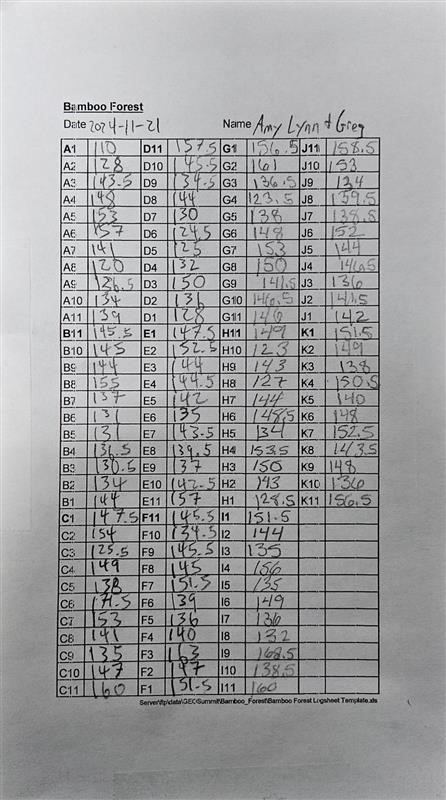 Bamboo Forest
Date 2024-11-21 Name Amy Lynn + Greg
A1 110 D11 157.5 G1 156.5 J11 158.5
A2 128 D10 145.5 G2 161 J10 153
A3 143.5 D9 134.5 G3 136.5 J9 134
A4 148 D8 144 G4 123.5 J8 139.5
A5 153 D7 130 G5 138 J7 138.5
A6 157 D6 124.5 G6 148 J6 152
A7 141 D5 125 G7 153 J5 144
A8 120 D4 132 G8 150 J4 146.5
A9 136.5 D3 150 G9 141.5 J3 136
A10 134 D2 136 G10 146.5 J2 141.5
A11 139 D1 128 G11 146 J1 142
B11 145.5 E1 147.5 H11 149 K1 151.5
B10 145 E2 152.5 H10 123 K2 149
B9 144 E3 144 H9 143 K3 138
B8 155 E4 144.5 H8 127 K4 150.5
B7 137 E5 142 H7 144 K5 140
B6 131 E6 135 H6 148.5 K6 148
B5 131 E7 143.5 H5 134 K7 152.5
B4 136.5 E8 139.5 H4 153.5 K8 143.5
B3 130.5 E9 137 H3 150 K9 148
B2 134 E10 142.5 H2 143 K10 136
B1 144 E11 157 H1 128.5 K11 156.5
C1 147.5 F11 145.5 I1 151.5
C2 154 F10 134.5 I2 144
C3 125.5 F9 145.5 I3 135
C4 149 F8 145 I4 156
C5 138 F7 151.5 I5 135
C6 F6 139 I6 149
C7 153 F5 136 I7 136
C8 141 F4 140 I8 132
C9 135 F3 163 I9 168.5
C10 147 F2 147 I10 138.5
C11 160 F1 151.5 I11 160
Server\ftp\data\GEOSummit\Bamboo_Forest\Bamboo Forest Logsheet Template.xls